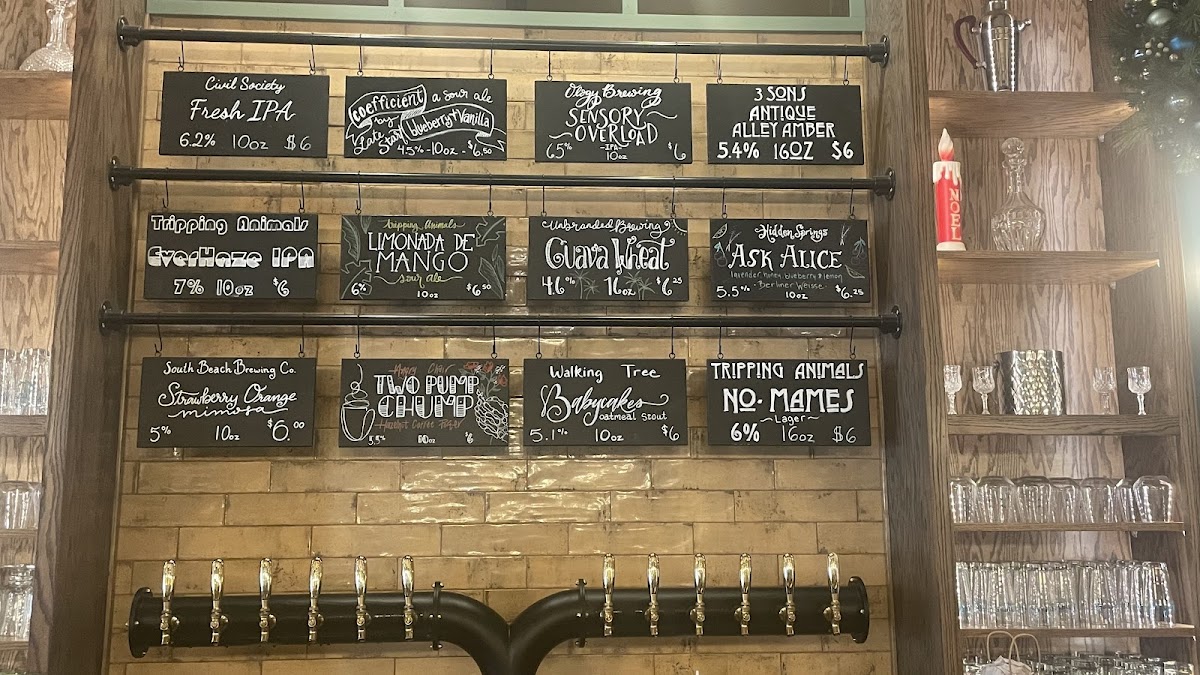 Civil Society
Fresh IPA
6.2% 10oz $6
Coefficient a sour ale
by Late Start blueberry + Vanilla
4.5% - 10oz - $6.50
Ology Brewing
SENSORY
OVERLOAD
- IPA -
6.5% 10oz $6
3 SONS
ANTIQUE
ALLEY AMBER
5.4% 16OZ $6
Tripping Animals
EverHaze IPA
7% 10oz $6
Tripping Animals
LIMONADA DE
MANGO
sour Ale
6% 10oz $6.50
Unbranded Brewing
Guava Wheat
4.6% 16oz $6.25
Hidden Springs
ASK ALICE
lavender, honey, blueberry & lemon
- Berliner Weisse -
5.5% 10oz $6.25
NOEL
South Beach Brewing Co.
Strawberry Orange
mimosa
5% 10oz $6.00
TWO PUMP
CHUMP
Hazelnut Coffee
5.5% 10oz $6
Walking Tree
Babycakes
oatmeal stout
5.1% 10oz $6
TRIPPING ANIMALS
NO·MAMES
~Lager~
6% 16oz $6